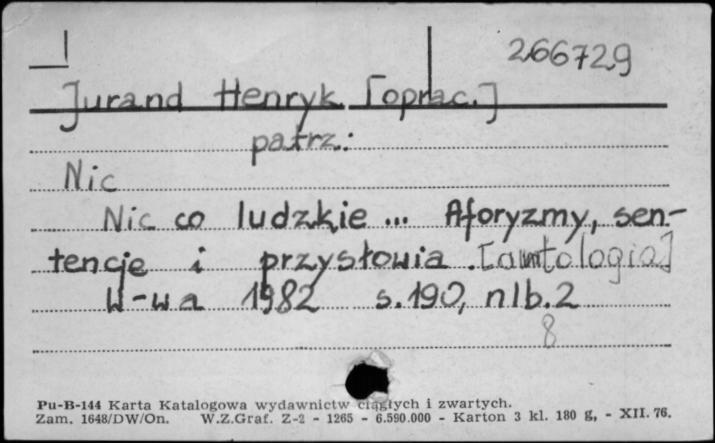 266729
Jurand Henryk [oprac.]
patrz:
Nic
Nic co ludzkie ... Aforyzmy, sen-
tencje i przysłowia. [antologia]
W-wa 1982 s. 190, nlb. 2
8
Pu-B-144 Karta Katalogowa wydawnictw ciągłych i zwartych.
Zam. 1648/DW/On. W.Z.Graf. Z-2 - 1265 - 6.590.000 - Karton 3 kl. 180 g, - XII. 76.